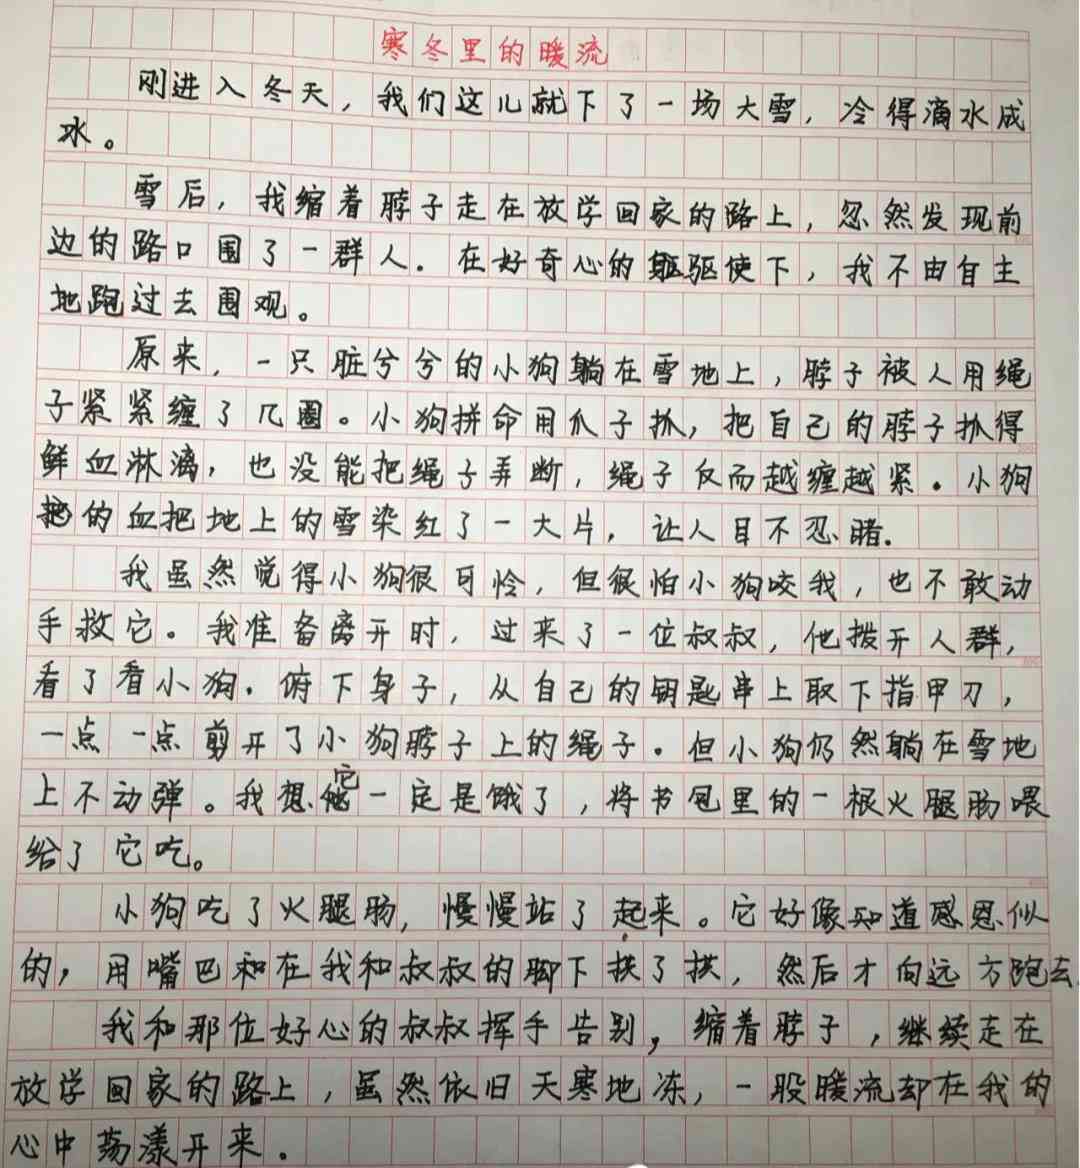 寒冬里的暖流
刚进入冬天，我们这儿就下了一场大雪，冷得滴水成
冰。
雪后，我缩着脖子走在放学回家的路上，忽然发现前
边的路口围了一群人．在好奇心的驱使下，我不由自主
地跑过去围观。
原来，一只脏兮兮的小狗躺在雪地上，脖子被人用绳
子紧紧缠了几圈。小狗拼命用爪子抓，把自己的脖子抓得
鲜血淋漓，也没能把绳子弄断，绳子反而越缠越紧．小狗
的血把地上的雪染红了一大片，让人目不忍睹．
我虽然觉得小狗很可怜，但很怕小狗咬我，也不敢动
手救它。我准备离开时，过来了一位叔叔，他拨开人群，
看了看小狗．俯下身子，从自己的钥匙串上取下指甲刀，
一点一点剪开了小狗脖子上的绳子．但小狗仍然躺在雪地
上不动弹。我想它一定是饿了，将书包里的一根火腿肠喂
给了它吃。
小狗吃了火腿肠，慢慢站了起来。它好像知道感恩似
的，用嘴巴和在我和叔叔的脚下拱了拱，然后才向远方跑去．
我和那位好心的叔叔挥手告别，缩着脖子，继续走在
放学回家的路上，虽然依旧天寒地冻，一股暖流却在我的
心中荡漾开来．